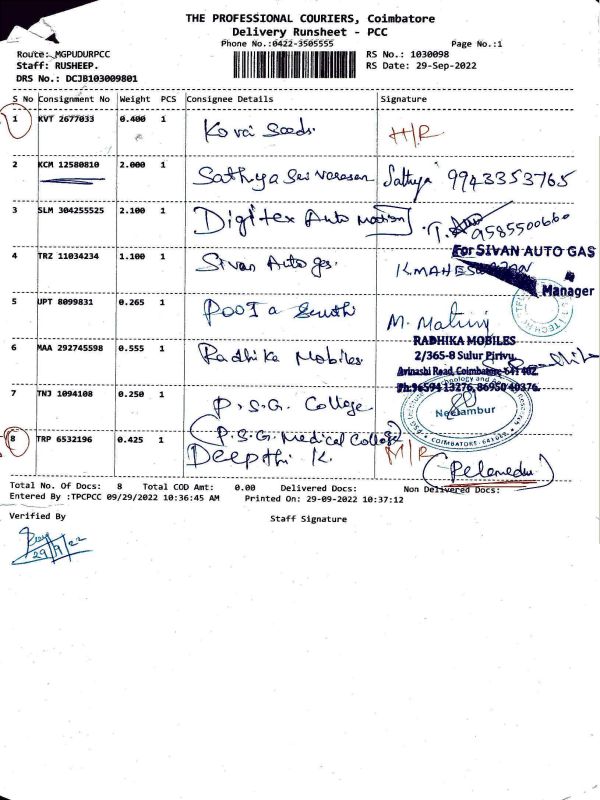 THE PROFESSIONAL COURIERS, Coimbatore
Delivery Runsheet - PCC
Phone No.:0422-3505555
Page No.:1
Route: MGPUDURPCC
RS No.: 1030098
Staff: RUSHEEP.
RS Date: 29-Sep-2022
DRS No.: DCJB103009801
S No Consignment No Weight PCS Consignee Details Signature
1 KVT 2677033 0.400 1 Kovai Seeds. H/R
2 KCM 12580810 2.000 1 Sathya Sathya 9943353765
3 SLM 304255525 2.100 1 Digitex Automation 9585500660
For SIVAN AUTO GAS
4 TRZ 11034234 1.100 1 Sivan Auto gas.
Manager
5 UPT 8099831 0.265 1 Pooja
RADHIKA MOBILES
6 MAA 292745598 0.555 1 Radhika Mobiles
2/365-8 Sulur Pirivu,
Avinashi Road, Coimbatore-641 402.
Ph:96594 13276, 86950 40376.
7 TNJ 1094108 0.250 1 P.S.G. College
Neelambur
COIMBATORE
(P.S.G. Medical College)
8 TRP 6532196 0.425 1 Deepthi K. M/R
(Pelamedu)
Total No. Of Docs: 8 Total COD Amt: 0.00 Delivered Docs: Non Delivered Docs:
Entered By :TPCPCC 09/29/2022 10:36:45 AM Printed On: 29-09-2022 10:37:12
Verified By
Staff Signature
29/9/22